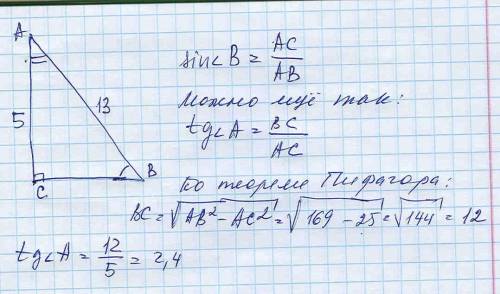 A
5
13
C
B
sin<B = AC/AB
Можно ещё так:
tg<A = BC/AC
По теореме Пифагора:
BC = √(AB² - AC²) = √(169 - 25) = √144 = 12
tg<A = 12/5 = 2,4